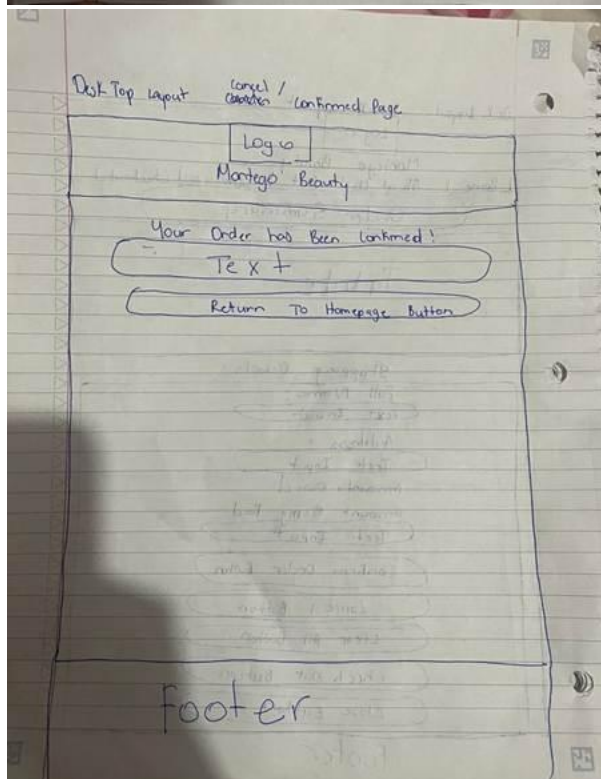 Desk Top Layout Cancel / Confirmed Page
Logo
Montego Beauty
Your Order has Been Confirmed!
Text
Return To Homepage Button
Footer